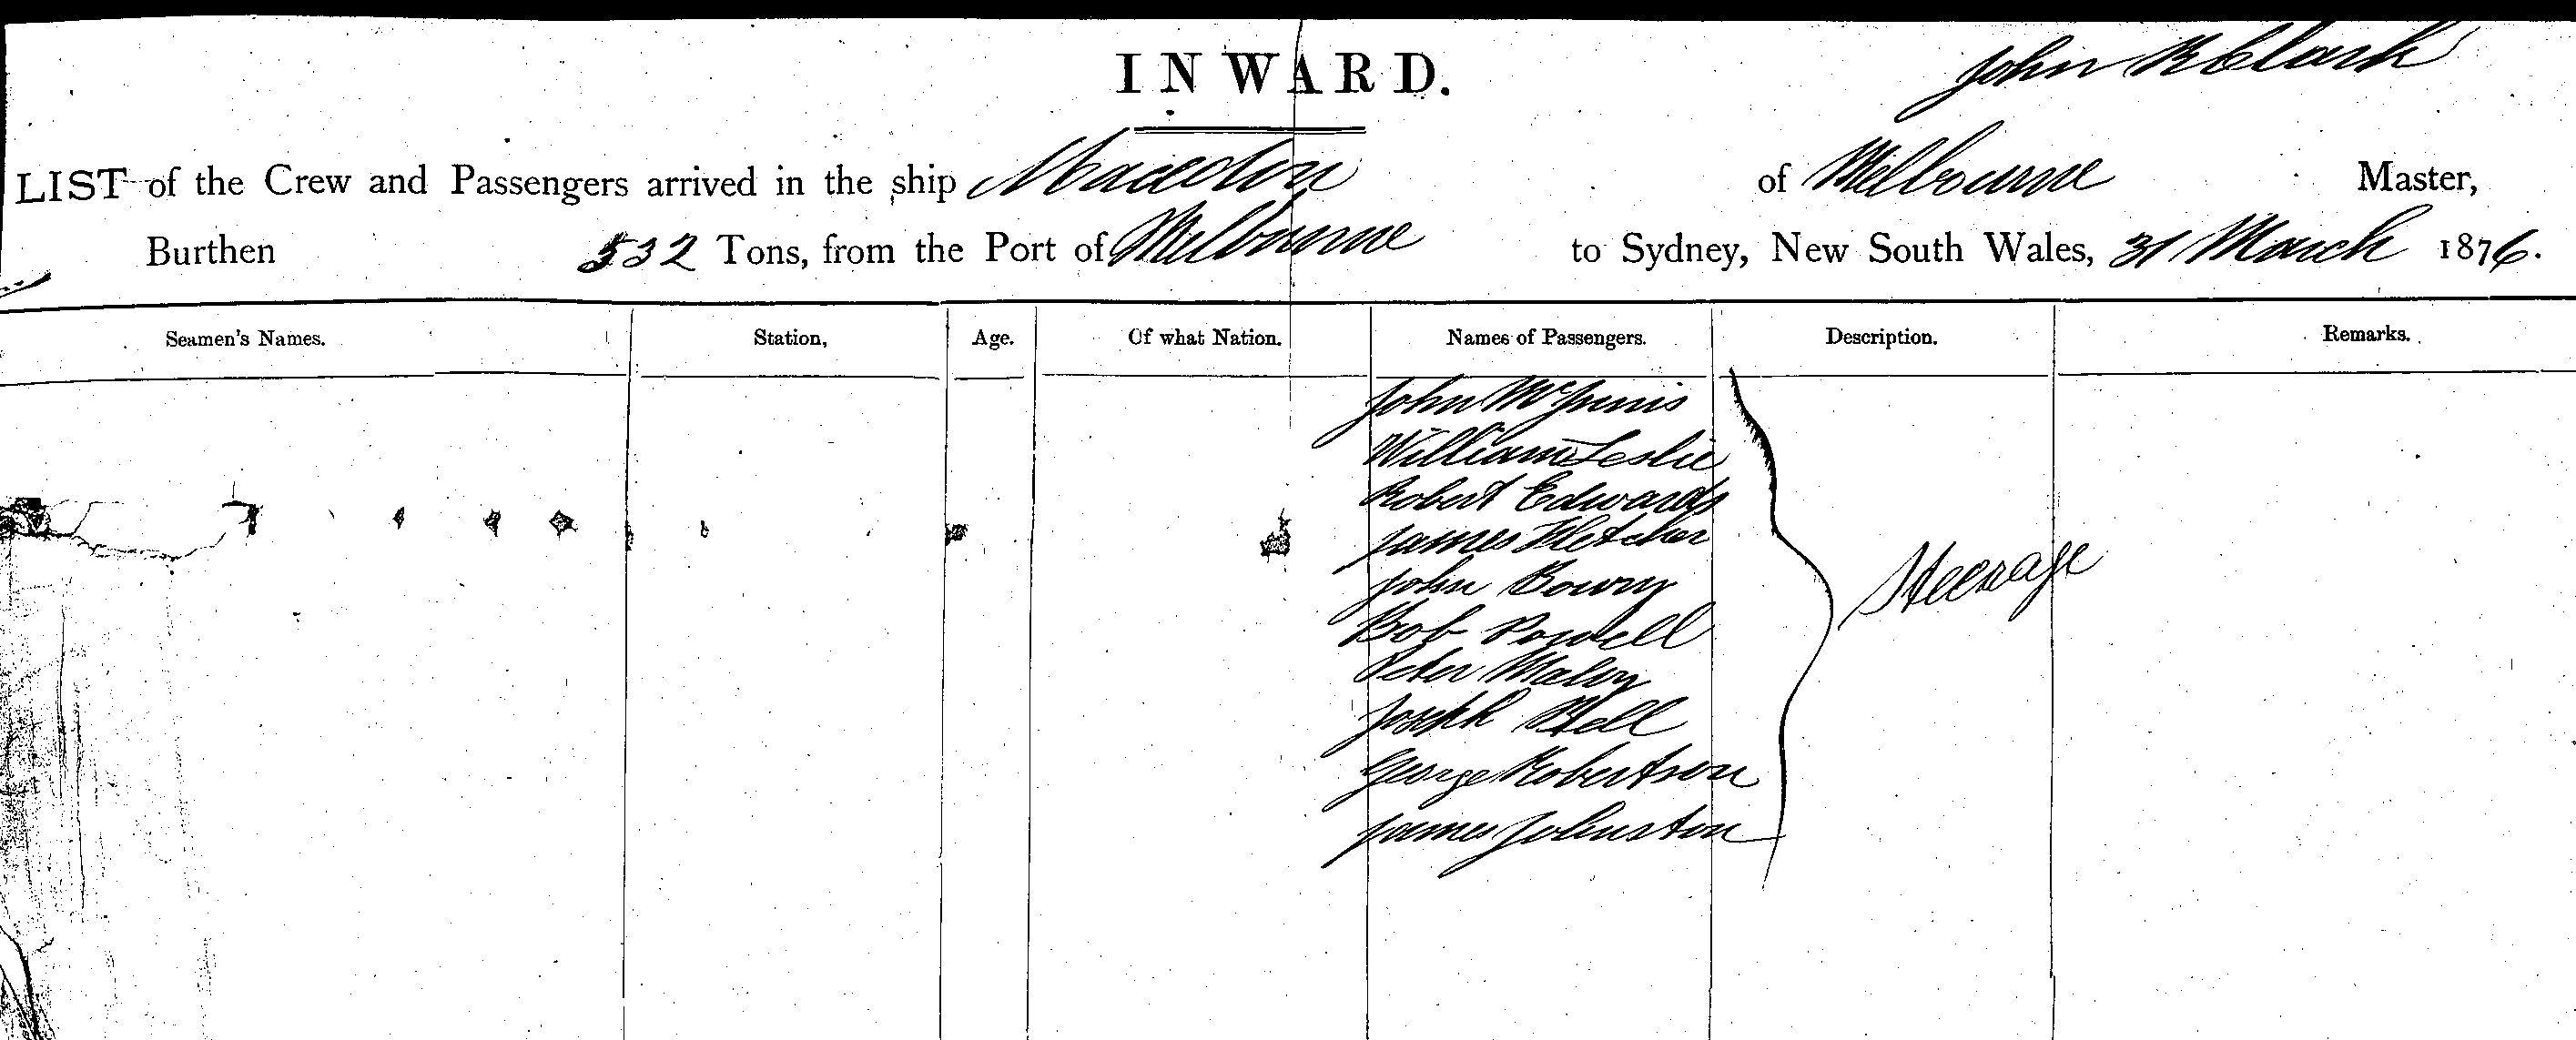 INWARD.
John R Clark
LIST of the Crew and Passengers arrived in the ship Macedon of Melbourne Master,
Burthen 532 Tons, from the Port of Melbourne to Sydney, New South Wales, 31 March 1876.
Seamen's Names. Station, Age. Of what Nation. Names of Passengers. Description. Remarks.
John McInnis
William Leslie
Robert Edwards
James Fletcher
John
Bob Powell
Peter
Joseph Bell
George Robertson
James Johnston
Steerage